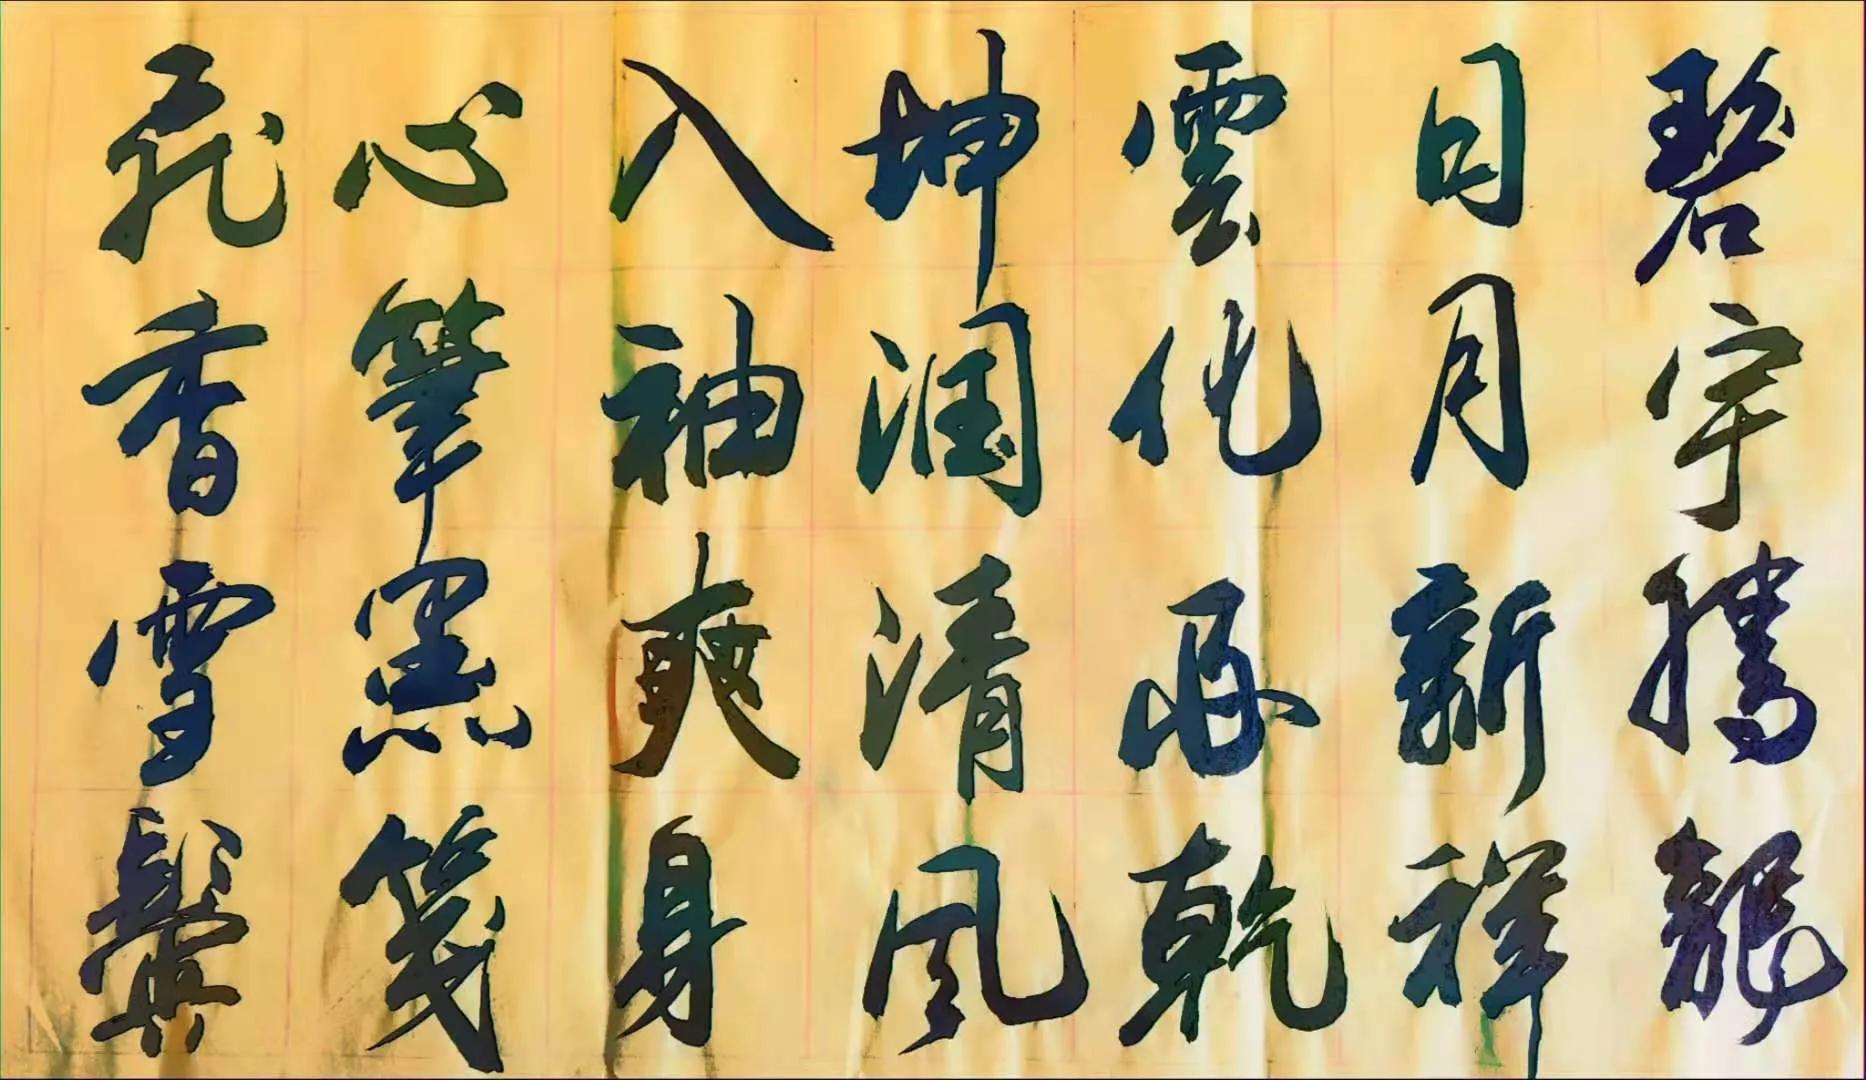 碧宇騰龍
日月新祥
雲化乾
坤润清风
入袖爽身
心筆黑笺
飛香雪鬓